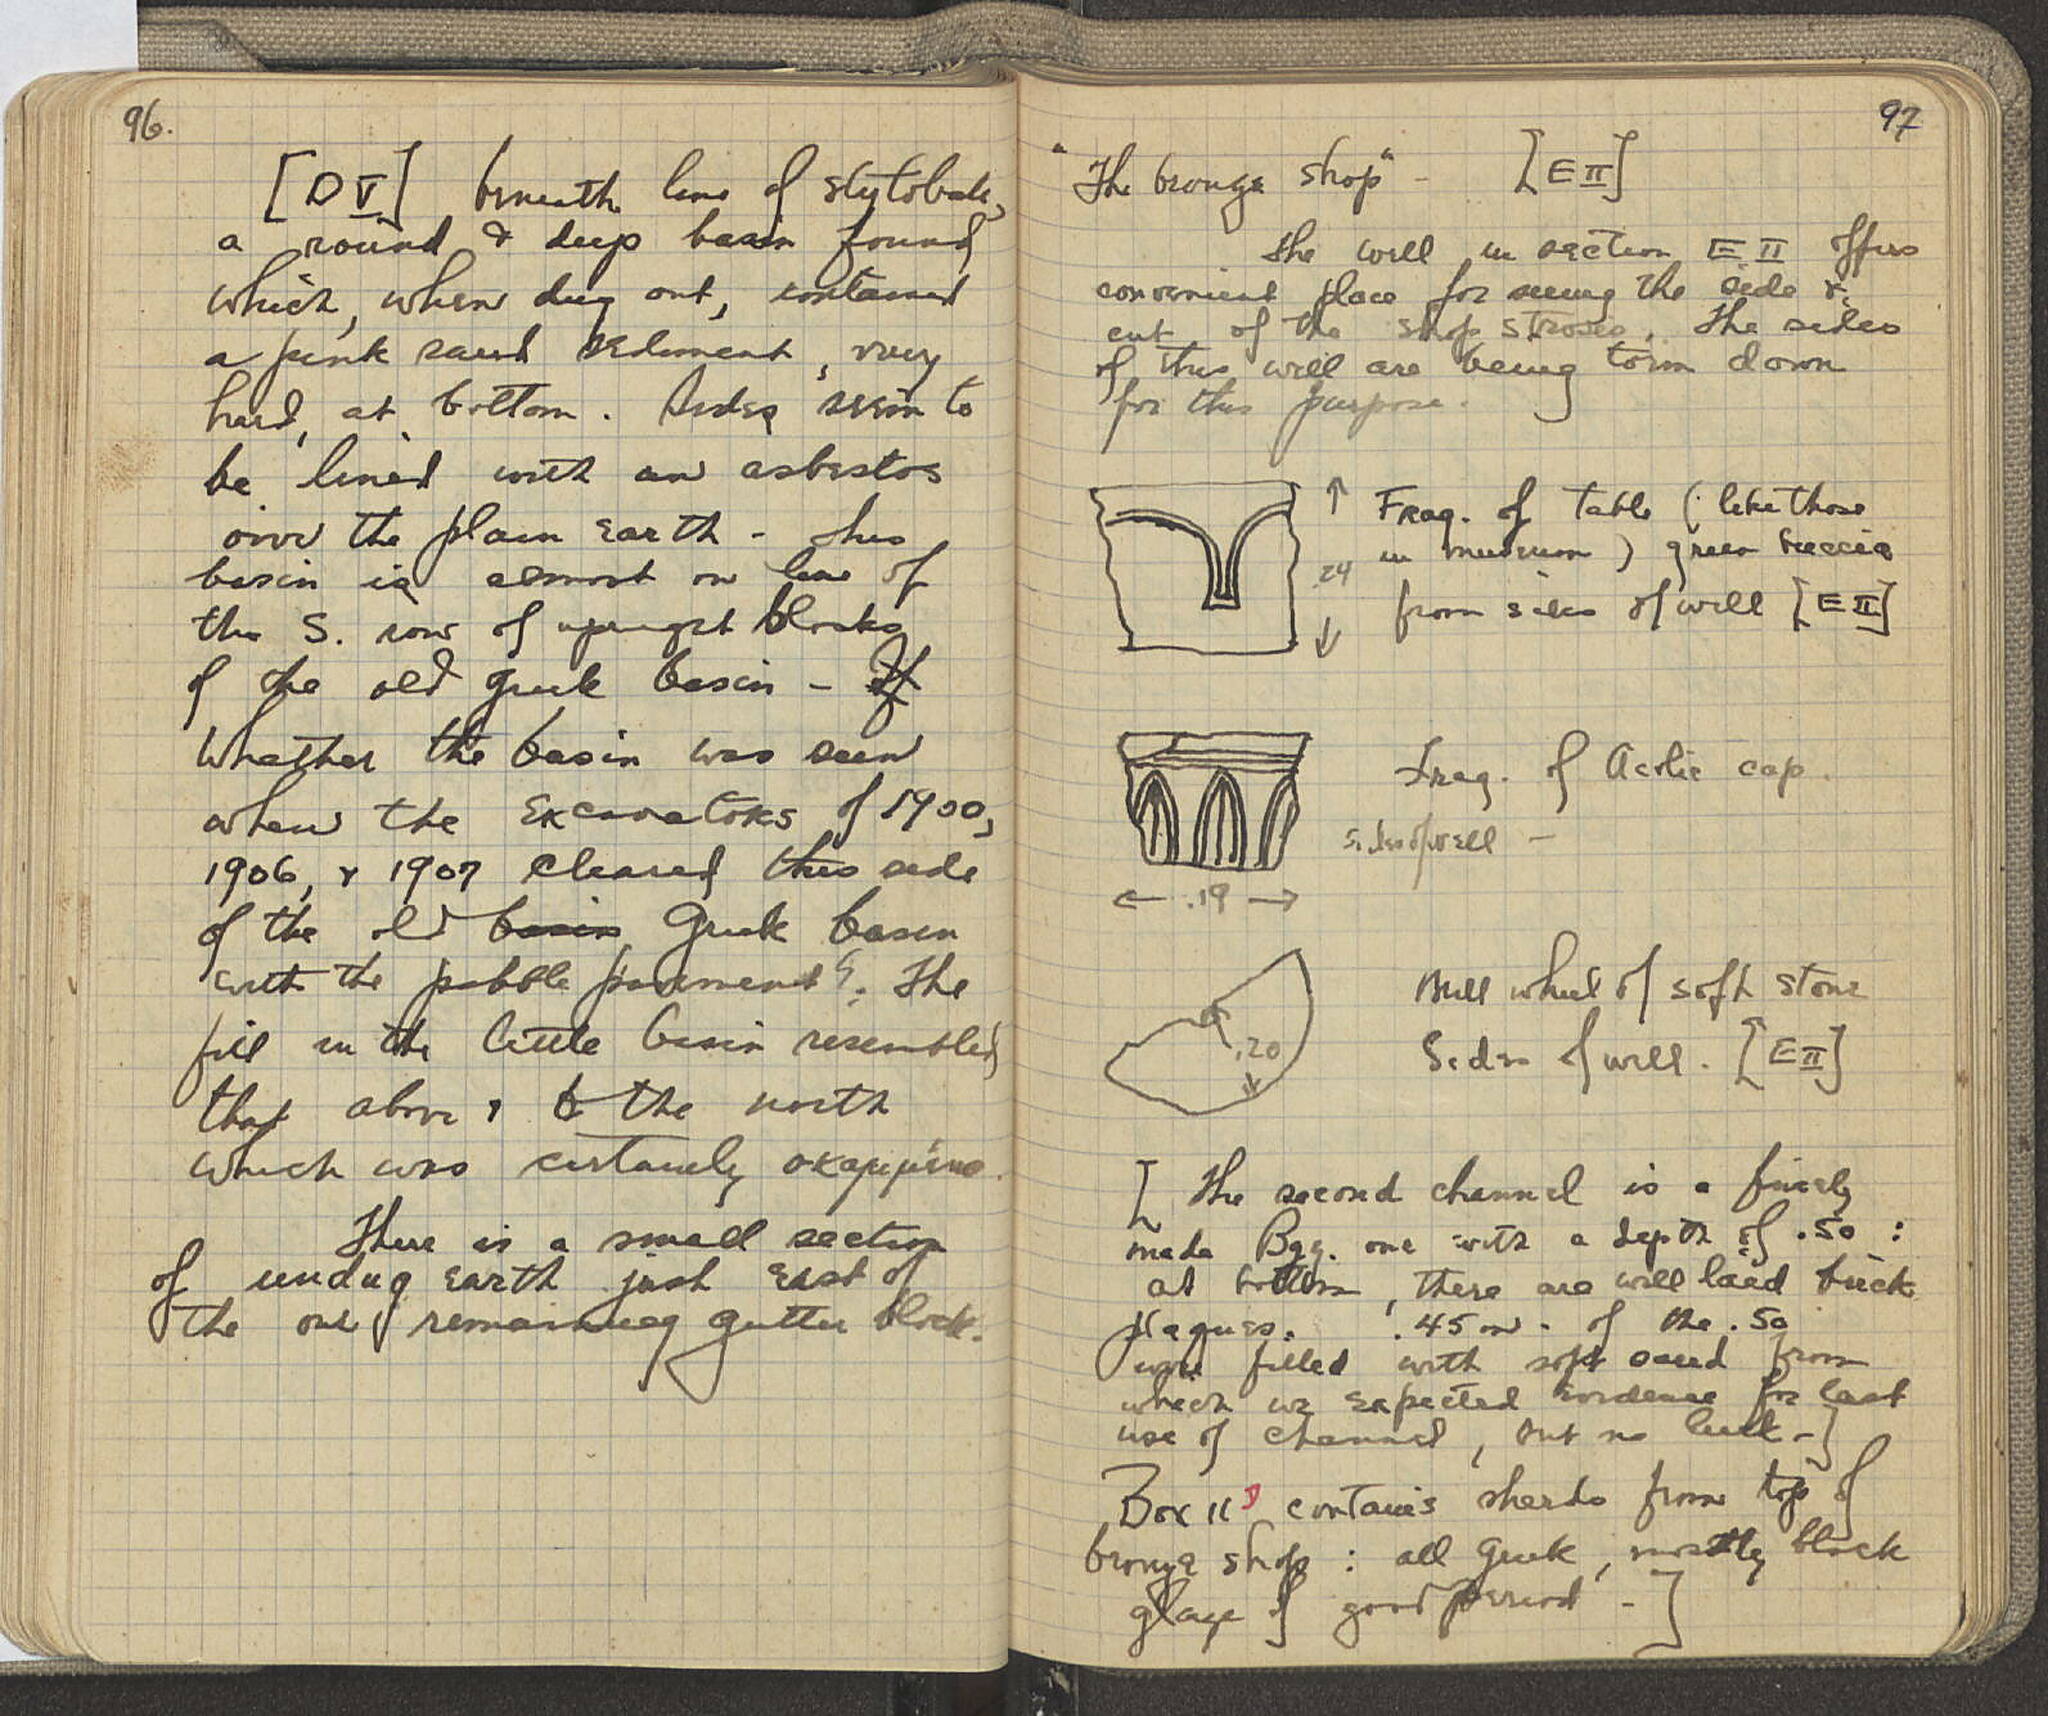 96.
[D V] beneath line of stylobate,
a round & deep basin found
which, when dug out, contained
a pink sand sediment, very
hard, at bottom. Sides seem to
be lined with an asbestos
over the plain earth - This
basin is almost on line of
the S. row of upright blocks
of the old Greek basin - If
Whether the basin was seen
when the excavators of 1900,
1906, & 1907 cleared this side
of the old basin Greek basin
with the pebble pavement?. The
fill in the little basin resembled
that above & to the north
which was certainly
There is a small section
of undug earth just east of
the one remaining gutter block.
97
"The bronze shop" - [E II]
The well in section E II offers
convenient place for seeing the side &
cut of the shop . The sides
of this well are being torn down
for this purpose.
Frag. of table (like those
in museum) green breccia
.24
from sides of well [E II]
Frag. of Aeolic cap.
sides of well -
.19
Mill wheel of soft stone
.20
Sides of well. [E II]
[The second channel is a finely
made Byz. one with a depth of .50 :
at bottom, there are well laid brick
plaques. .45 m. of the .50
were filled with soft sand from
which we expected evidence for last
use of channel, but no luck -]
Box 11 D contains sherds from top of
bronze shop : all Greek, mostly black
glaze of good period - ]